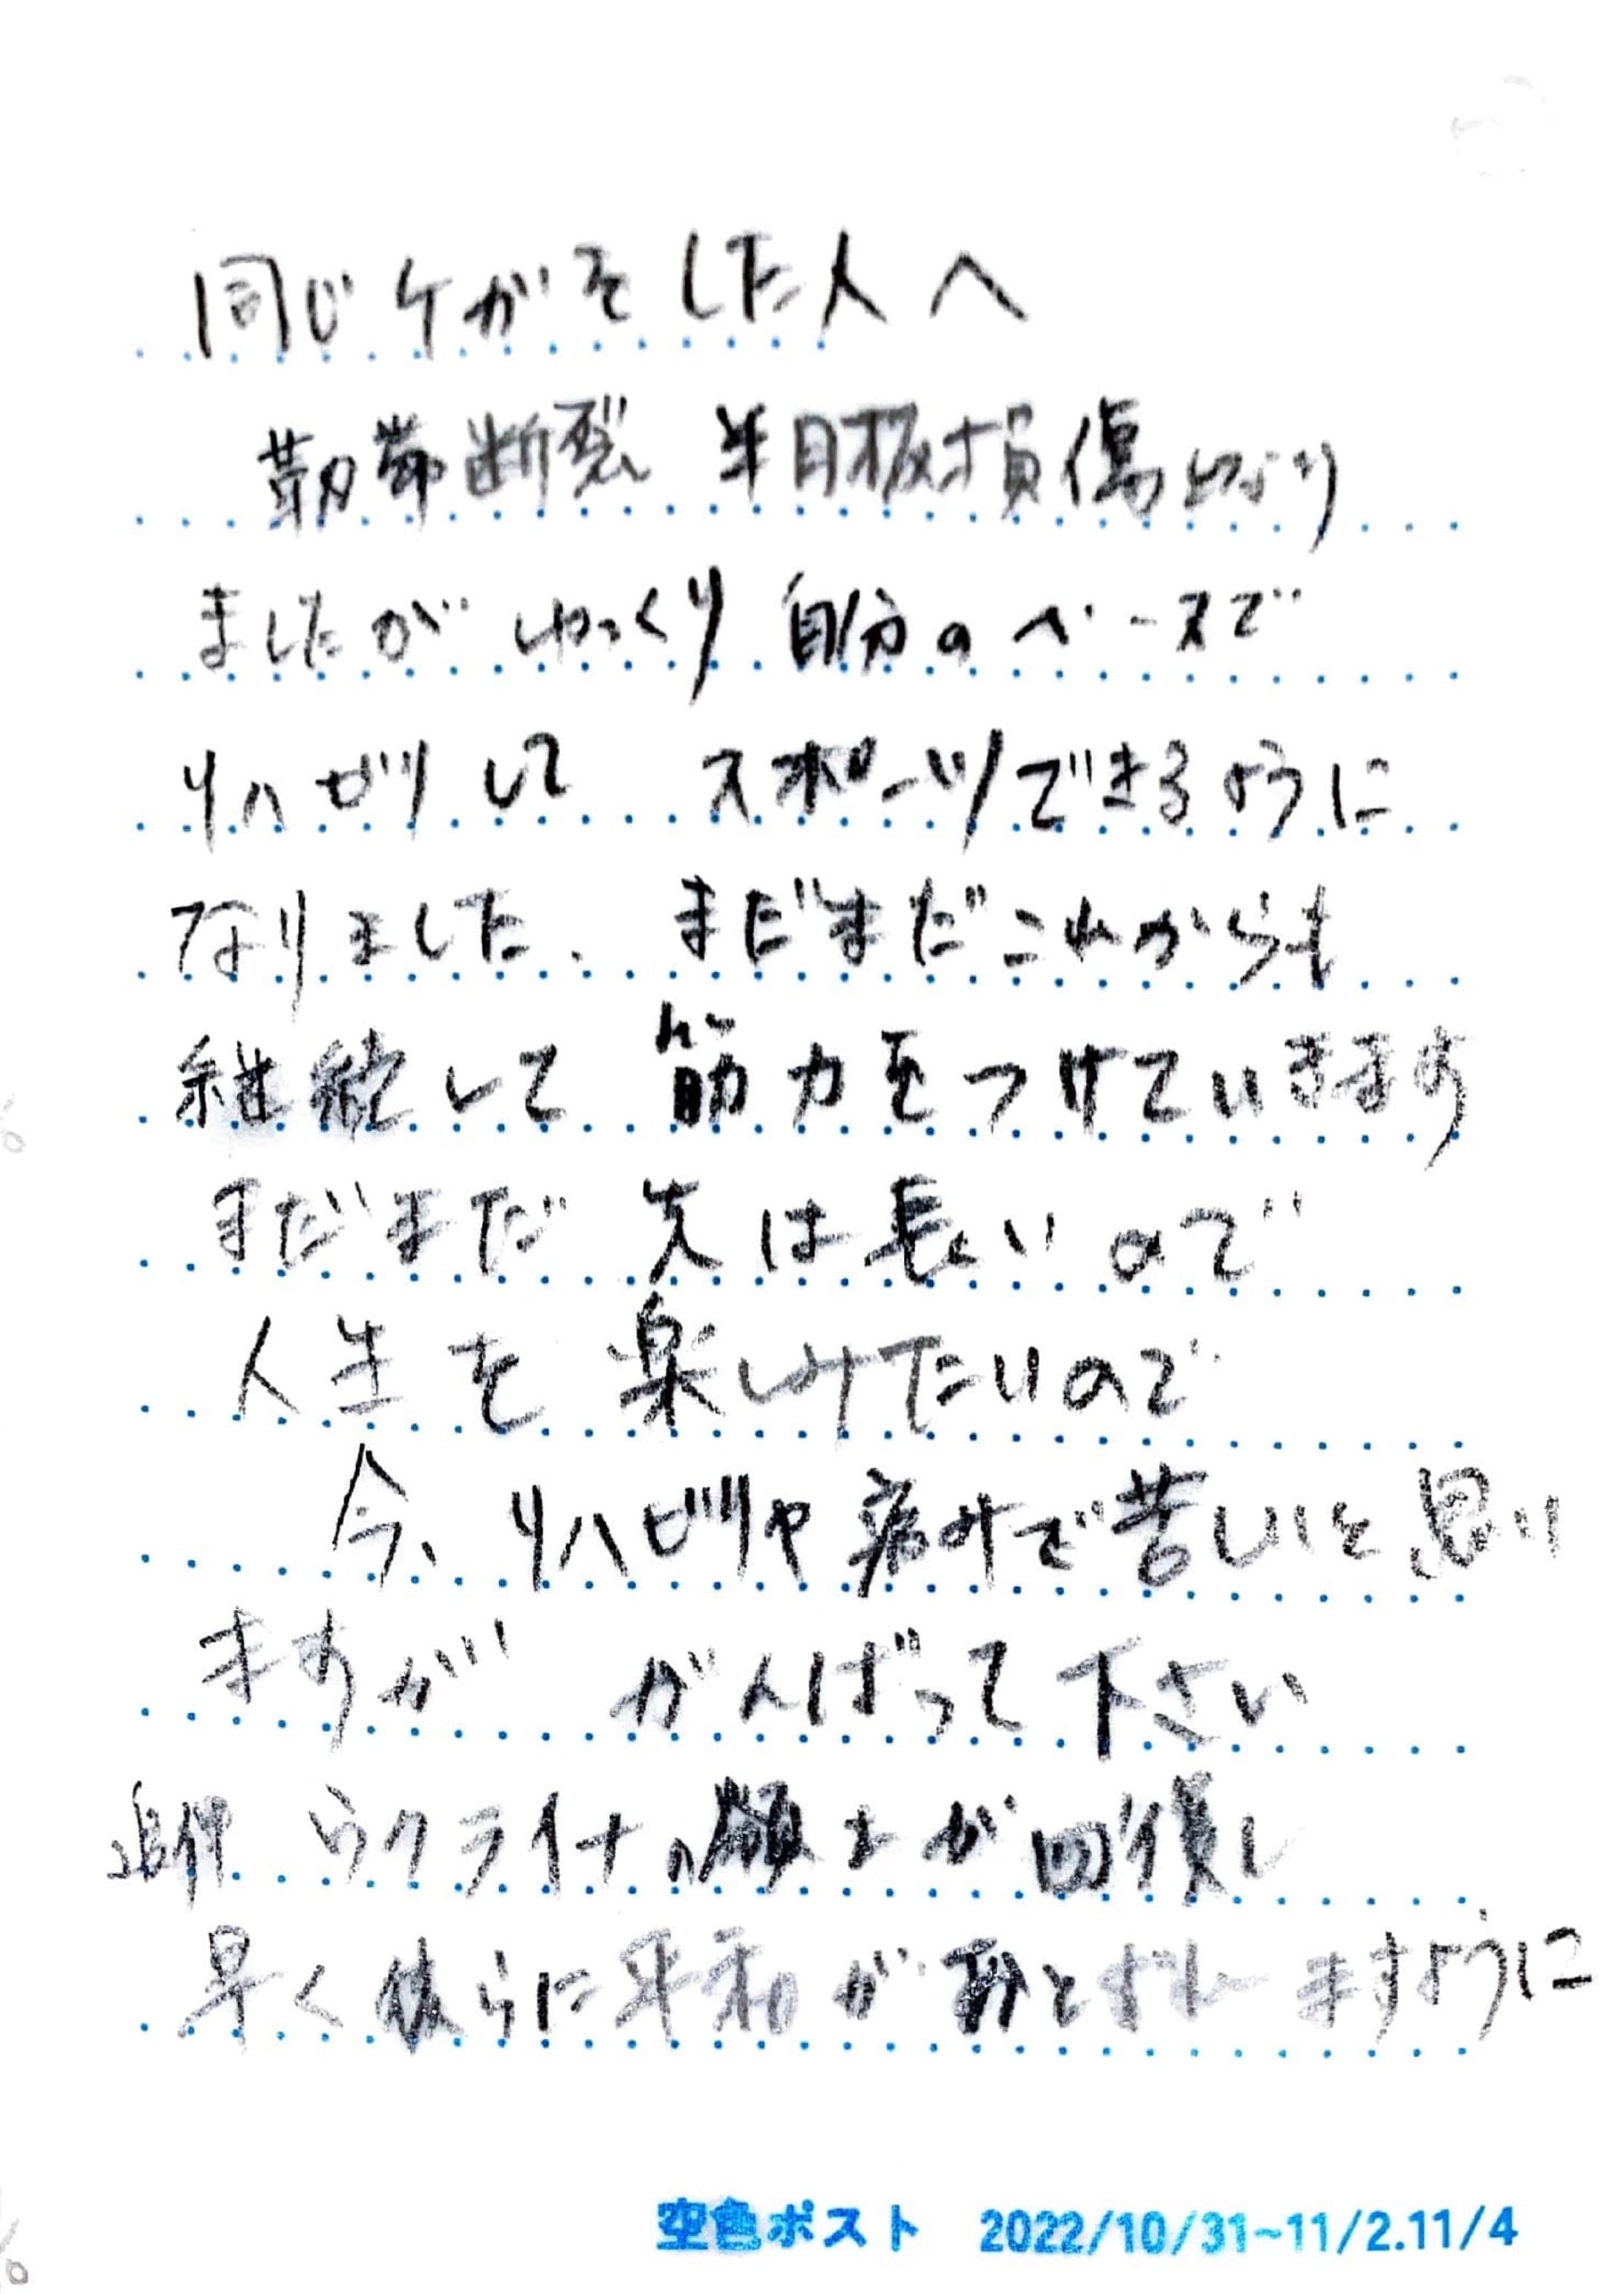 同じケガをした人へ
靭帯断裂 半月板損傷となり
ましたが ゆっくり 自分のペースで
リハビリして スポーツできるように
なりました、まだまだこれからも
継続して 筋力をつけていきます
まだまだ 先は長いので
人生を 楽しみたいので
今、リハビリや痛みで苦しいと思い
ますが がんばって下さい
追伸 ウクライナの領土が回復し
早く彼らに平和がおとずれますように
空色ポスト 2022/10/31~11/2.11/4